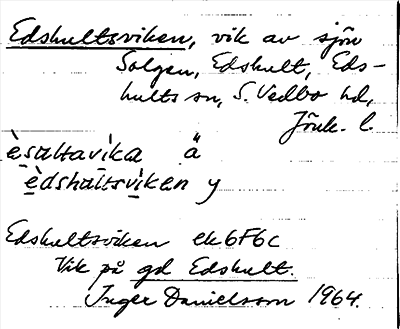 Edshultsviken, vik av sjön
Solgen, Edshult, Eds-
hults sn, S. Vedbo hd,
Jönk. l.
èsáltavíka ä
èdshaltsviken y
Edshultsviken ek6F6c
Vik på gd Edshult.
Inger Danielsson 1964.